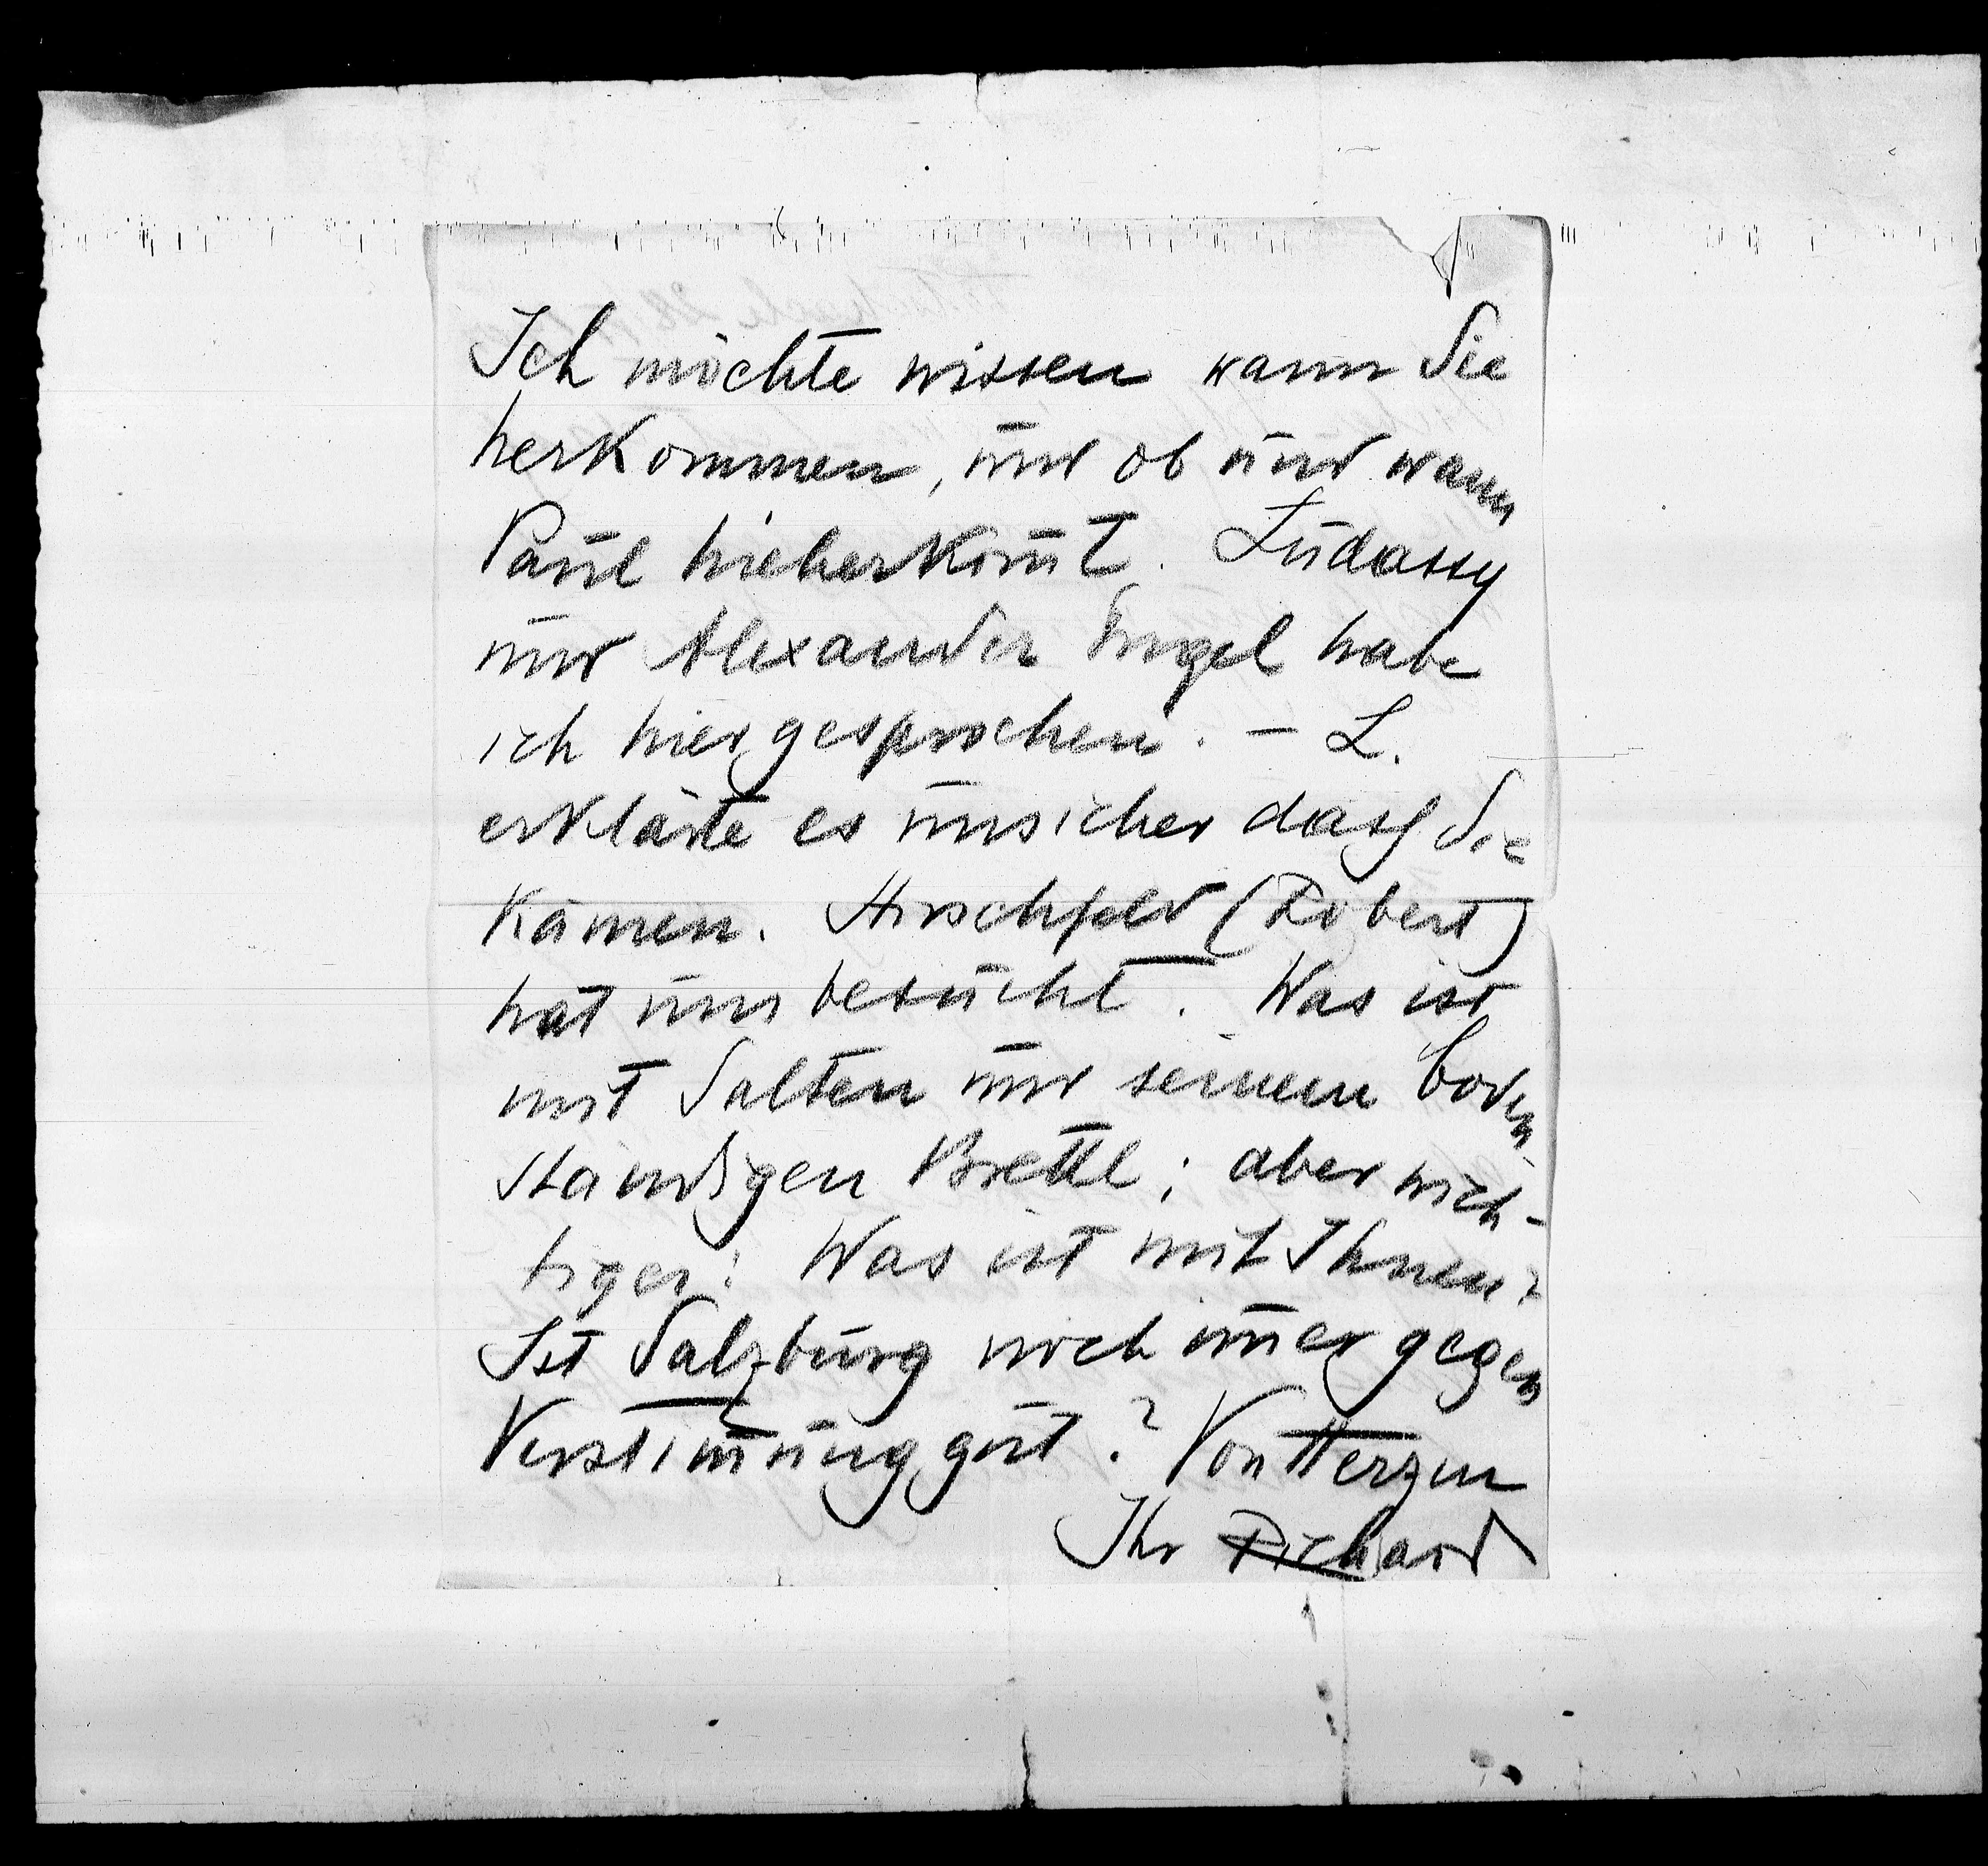 Ich möchte wissen wann Sie
herkommen, und ob und wann
Paul hieherkom̄t. Ludassy
und Alexander Engel habe
ich hier gesprochen. – L.
erklärte es unsicher dass Sie
kämen. Hirschfeld (Robert)
hat uns besucht. Was ist
mit Salten und seinem boden
ständigen Brettl; aber wich-
tiger: Was ist mit Ihnen?
Ist Salzburg noch im̄er gegen
Verstim̄ung gut? Von Herzen
Ihr Richard